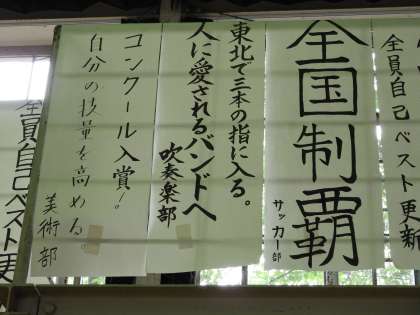 全員自己ベスト更新
全国制覇
サッカー部
東北で三本の指に入る。
人に愛されるバンドへ
吹奏楽部
コンクール入賞!
自分の技量を高める。
美術部
全員自己ベスト更